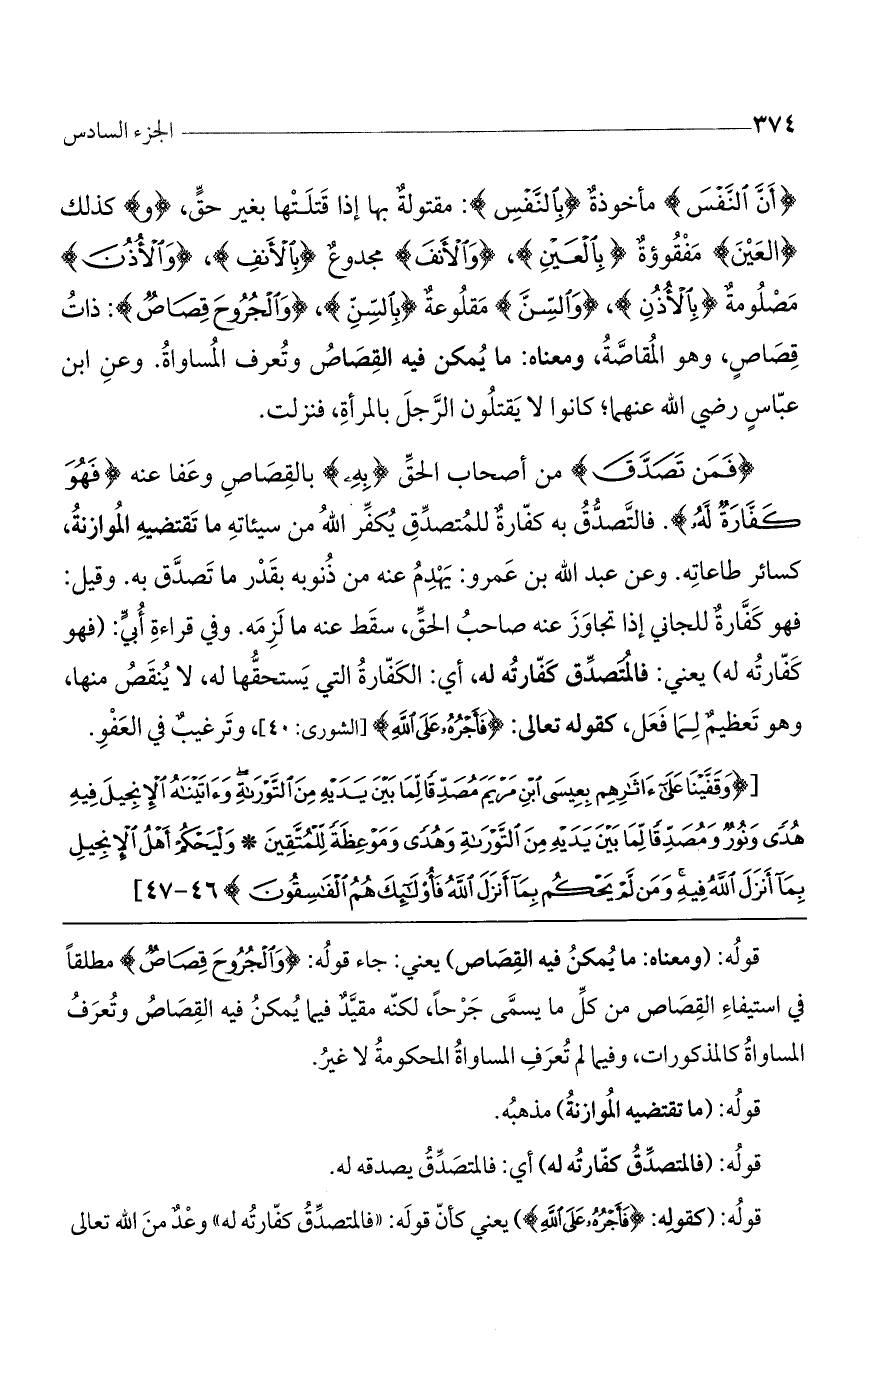 ٣٧٤ الجزء السادس
﴿أَنَّ ٱلنَّفْسَ﴾ مأخوذةٌ ﴿بِٱلنَّفْسِ﴾: مقتولةٌ بها إذا قَتلَتْها بغير حقٍّ، ﴿و﴾ كذلك
﴿العَيْنَ﴾ مَفْقُوؤةٌ ﴿بِٱلْعَيْنِ﴾، ﴿وَٱلْأَنفَ﴾ مجدوعٌ ﴿بِٱلْأَنفِ﴾، ﴿وَٱلْأُذُنَ﴾
مَصْلُومةٌ ﴿بِٱلْأُذُنِ﴾، ﴿وَٱلسِّنَّ﴾ مَقلُوعةٌ ﴿بِٱلسِّنِّ﴾، ﴿وَٱلْجُرُوحَ قِصَاصٌ﴾: ذاتُ
قِصَاصٍ، وهو المُقاصَّةُ، ومعناه: ما يُمكن فيه القِصَاصُ وتُعرف المُساواةُ. وعنِ ابن
عبّاسٍ رضي الله عنهما؛ كانوا لا يَقتلُون الرَّجلَ بالمرأةِ، فنزلت.
﴿فَمَن تَصَدَّقَ﴾ من أصحاب الحقِّ ﴿بِهِۦ﴾ بالقِصَاصِ وعَفا عنه ﴿فَهُوَ
كَفَّارَةٌ لَّهُۥ﴾. فالتَّصدُّقُ به كفّارةٌ للمُتصدِّقِ يُكفِّر اللهُ من سيئاتهِ ما تَقتضيهِ الموازنةُ،
كسائر طاعاتِه. وعن عبد الله بن عَمرو: يَهْدِمُ عنه من ذُنوبه بقَدْر ما تَصدَّق به. وقيل:
فهو كَفَّارةٌ للجاني إذا تجاوَزَ عنه صاحبُ الحقِّ، سقَط عنه ما لَزِمَه. وفي قراءةِ أُبيٍّ: (فهو
كَفّارتُه له) يعني: فالمُتَصدِّق كَفّارتُه له، أي: الكَفّارةُ التي يَستحقُّها له، لا يُنقَصُ منها،
وهو تَعظيمٌ لِمَا فَعَل، كقوله تعالى: ﴿فَأَجْرُهُۥ عَلَى ٱللَّهِ﴾ [الشورى: ٤٠]، وتَرغيبٌ في العَفْوِ.
[﴿وَقَفَّيْنَا عَلَىٰٓ ءَاثَٰرِهِم بِعِيسَى ٱبْنِ مَرْيَمَ مُصَدِّقًا لِّمَا بَيْنَ يَدَيْهِ مِنَ ٱلتَّوْرَىٰةِ ۖ وَءَاتَيْنَٰهُ ٱلْإِنجِيلَ فِيهِ
هُدًى وَنُورٌ وَمُصَدِّقًا لِّمَا بَيْنَ يَدَيْهِ مِنَ ٱلتَّوْرَىٰةِ وَهُدًى وَمَوْعِظَةً لِّلْمُتَّقِينَ * وَلْيَحْكُمْ أَهْلُ ٱلْإِنجِيلِ
بِمَآ أَنزَلَ ٱللَّهُ فِيهِ ۚ وَمَن لَّمْ يَحْكُم بِمَآ أَنزَلَ ٱللَّهُ فَأُو۟لَٰٓئِكَ هُمُ ٱلْفَٰسِقُونَ﴾ ٤٦-٤٧]
قولُه: (ومعناه: ما يُمكنُ فيه القِصَاص) يعني: جاء قولُه: ﴿وَٱلْجُرُوحَ قِصَاصٌ﴾ مطلقاً
في استيفاءِ القِصَاص من كلِّ ما يسمَّى جَرْحاً، لكنّه مقيَّدٌ فيما يُمكنُ فيه القِصَاصُ وتُعرَفُ
المساواةُ كالمذكورات، وفيما لم تُعرَفِ المساواةُ المحكومةُ لا غيرُ.
قولُه: (ما تقتضيه الموازنةُ) مذهبُه.
قولُه: (فالمتصدِّقُ كفّارتُه له) أي: فالمتصَدِّقُ يصدقه له.
قولُه: (كقولِه: ﴿فَأَجْرُهُۥ عَلَى ٱللَّهِ﴾) يعني كأنّ قولَه: «فالمتصدِّقُ كفّارتُه له» وعْدٌ منَ الله تعالى